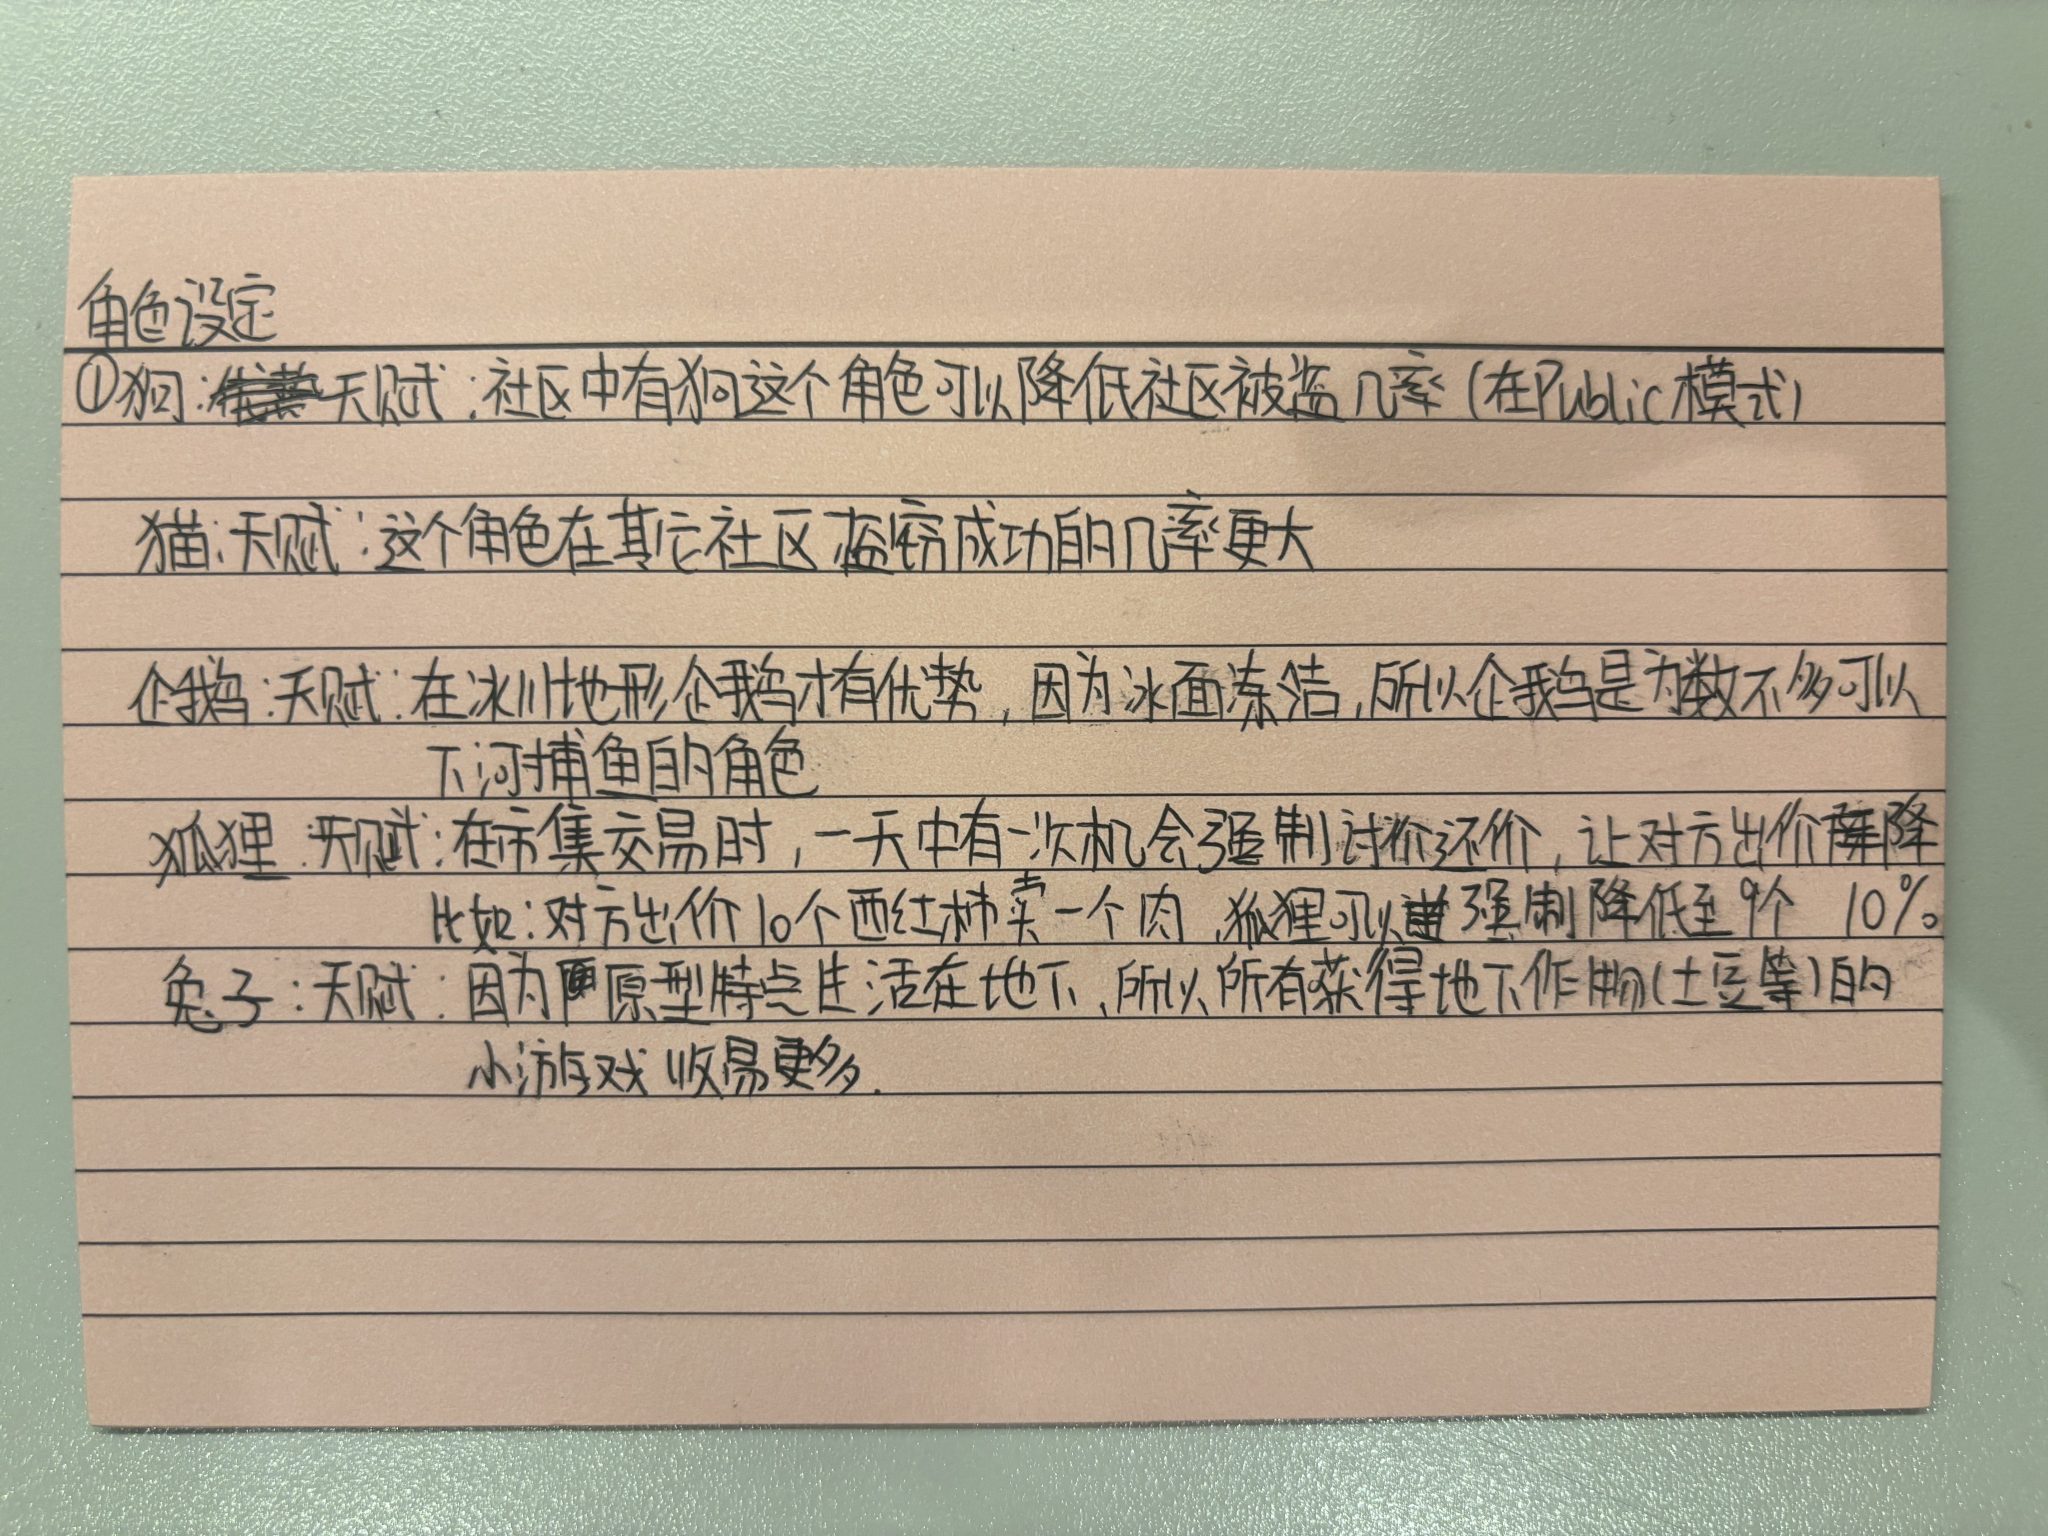 角色设定
①狗:天赋:社区中有狗这个角色可以降低社区被盗几率(在Public模式)
猫:天赋:这个角色在其它社区盗窃成功的几率更大
企鹅:天赋:在冰川地形企鹅才有优势,因为冰面冻洁,所以企鹅是为数不多可以
下河捕鱼的角色
狐狸:天赋:在市集交易时,一天中有一次机会强制讨价还价,让对方出价降
比如:对方出价10个西红柿卖一个肉,狐狸可以强制降低至9个 10%
兔子:天赋:因为原型特点生活在地下,所以所有获得地下作物(土豆等)的
小游戏收易更多.